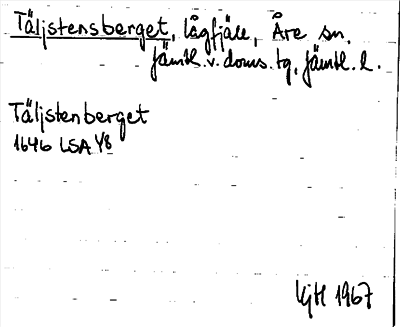 Täljstensberget, lågfjäll, Åre sn.
Jämtl. v. doms. tg, Jämtl. l.
Täljstenberget
1646 LSA Y8
KjH 1967